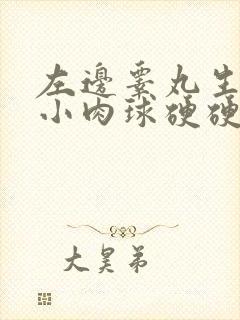 左邊睪丸生
小肉球硬硬
大昊弟